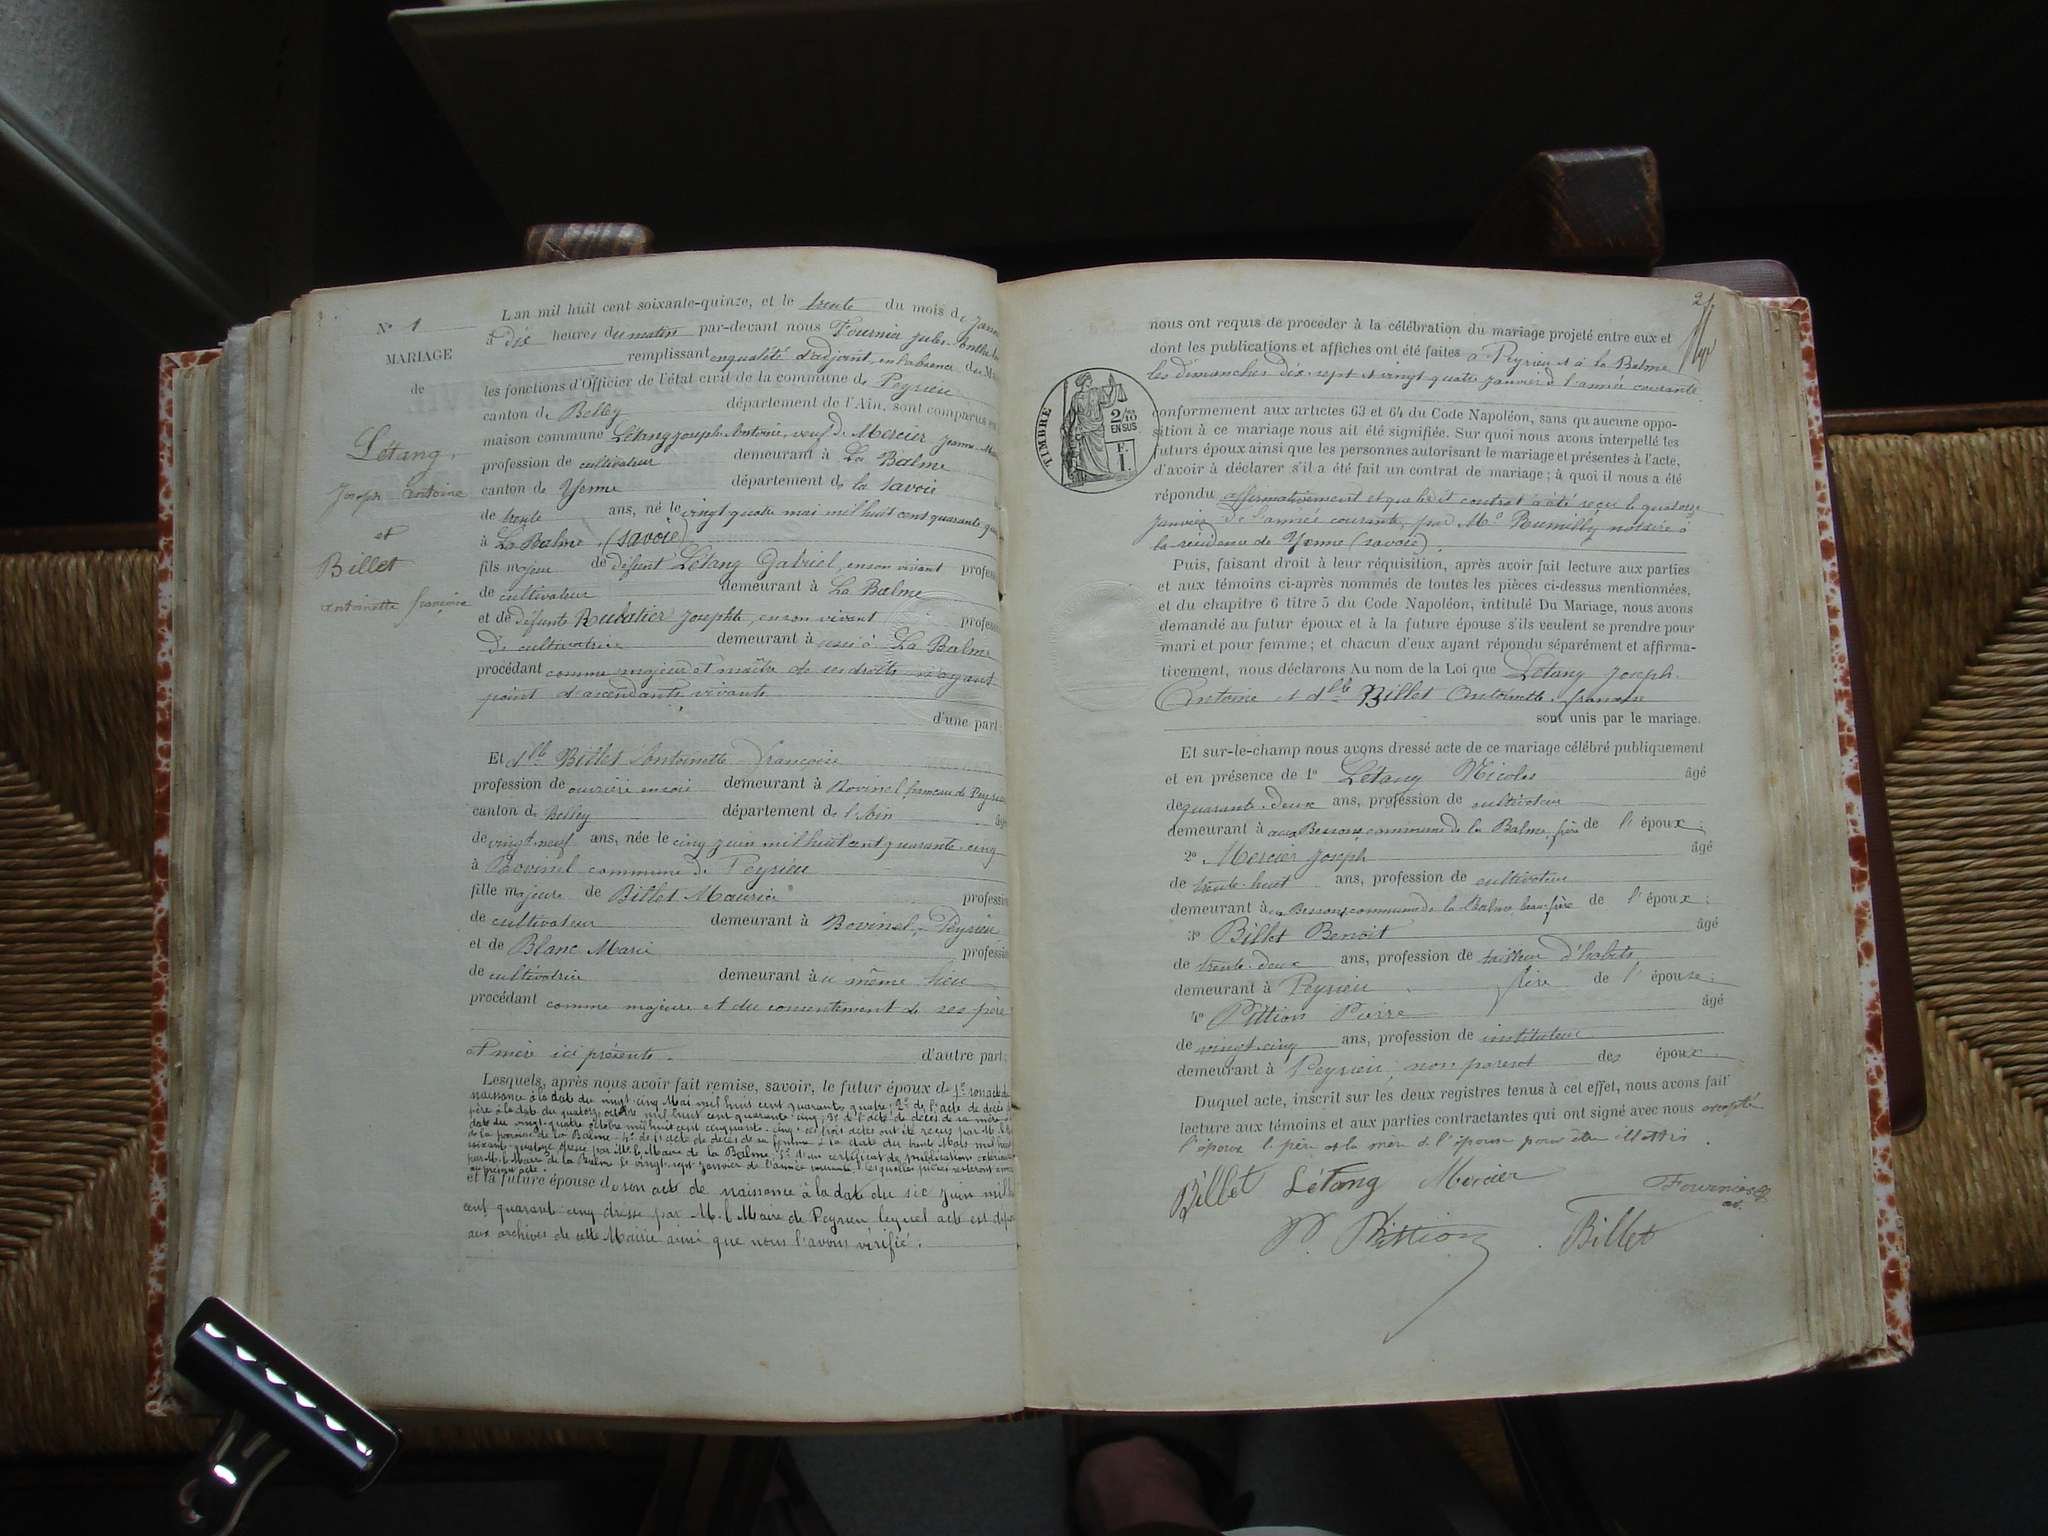 N° 1
MARIAGE
de
Létang
Joseph Antoine
et
Billet
Antoinette françoise
L an mil huit cent soixante-quinze, et le trente du mois de
à dix heures du matin par-devant nous Fournier jules
remplissant en qualité d'adjoint, en l'absence du
les fonctions d'Officier de l'état civil de la commune de Peyrieu
canton de Belley département de l'Ain, sont comparus en
maison commune Létang joseph Antoine, veuf de Mercier jeanne
profession de cultivateur demeurant à La Balme
canton de Yenne département de la Savoie
de trente ans, né le vingt quatre mai mil huit cent quarante
à La Balme (Savoie)
fils majeur de défunt Létang Gabriel, en son vivant
de cultivateur demeurant à La Balme
et de défunte josephte, en son vivant
De cultivatrice demeurant à La Balme
procédant comme majeur et maître de ses droits n'ayant
point d'ascendants vivants
d'une part;
Et dlle Billet Antoinette françoise
profession de ouvrière en soie demeurant à Rovinel hameau de
canton de Belley département de l'Ain
de vingt-neuf ans, née le cinq juin mil huit cent quarante-cinq
à Rovinel commune de Peyrieu
fille majeure de Billet Maurice
de cultivateur demeurant à Rovinel, Peyrieu
et de Blanc Marie
de cultivatrice demeurant au même lieu
procédant comme majeure et du consentement de ses père
et mère ici présents. d'autre part;
Lesquels, après nous avoir fait remise, savoir, le futur époux de 1° son acte de
naissance à la date du vingt-cinq Mai mil huit cent quarante quatre; 2° de l'acte de décès de
père à la date du quatorze octobre mil huit cent quarante-cinq; 3° de l'acte de décès de sa mère à
date du vingt-quatre octobre mil huit cent cinquante-cinq; ces trois actes ont été reçus par M. le
de la paroisse de la Balme. 4° de l'acte de décès de sa femme à la date du trente Mars mil huit
soixante quatorze dressé par M. le Maire de la Balme. 5° d'un certificat de publication
par M. le Maire de la Balme le vingt-sept janvier de l'année courante, lesquelles pièces resteront
au présent acte.
et la future épouse de son acte de naissance à la date du six juin mil
cent quarante-cinq dressé par M. le Maire de Peyrieu lequel acte est
aux archives de cette Mairie ainsi que nous l'avons vérifié.
2
nous ont requis de procéder à la célébration du mariage projeté entre eux et
dont les publications et affiches ont été faites à Peyrieu et à la Balme
les dimanches dix-sept et vingt quatre janvier de l'année courante
TIMBRE
2/10
EN SUS
F.
1.
conformement aux articles 63 et 64 du Code Napoléon, sans qu aucune oppo-
sition à ce mariage nous ait été signifiée. Sur quoi nous avons interpellé les
futurs époux ainsi que les personnes autorisant le mariage et présentes à l'acte,
d'avoir à déclarer s'il a été fait un contrat de mariage; à quoi il nous a été
répondu affirmativement et que ledit contrat a été reçu le quatorze
janvier de l'année courante, par Me Rumilly notaire à
la résidence de Yenne (Savoie).
Puis, faisant droit à leur réquisition, après avoir fait lecture aux parties
et aux témoins ci-après nommés de toutes les pièces ci-dessus mentionnées,
et du chapitre 6 titre 5 du Code Napoléon, intitulé Du Mariage, nous avons
demandé au futur époux et à la future épouse s'ils veulent se prendre pour
mari et pour femme; et chacun d'eux ayant répondu séparément et affirma-
tivement, nous déclarons Au nom de la Loi que Létang joseph
Antoine et dlle Billet Antoinette françoise
sont unis par le mariage.
Et sur-le-champ nous avons dressé acte de ce mariage célébré publiquement
et en présence de 1° Létang Nicolas âgé
de quarante-deux ans, profession de cultivateur
demeurant à aux Bessons commune de la Balme, frère de l'époux;
2° Mercier joseph âgé
de trente-huit ans, profession de cultivateur
demeurant à aux Bessons commune de la Balme beau-frère de l'époux;
3° Billet Benoit âgé
de trente-deux ans, profession de tailleur d'habits
demeurant à Peyrieu frère de l'épouse;
4° Pittion Pierre âgé
de vingt-cinq ans, profession de instituteur
demeurant à Peyrieu, non parent des époux.
Duquel acte, inscrit sur les deux registres tenus à cet effet, nous avons fait
lecture aux témoins et aux parties contractantes qui ont signé avec nous excepté
l'épouse le père et la mère de l'épouse pour être illettrés.
Billet Létang Mercier Fournier
P. Pittion Billet